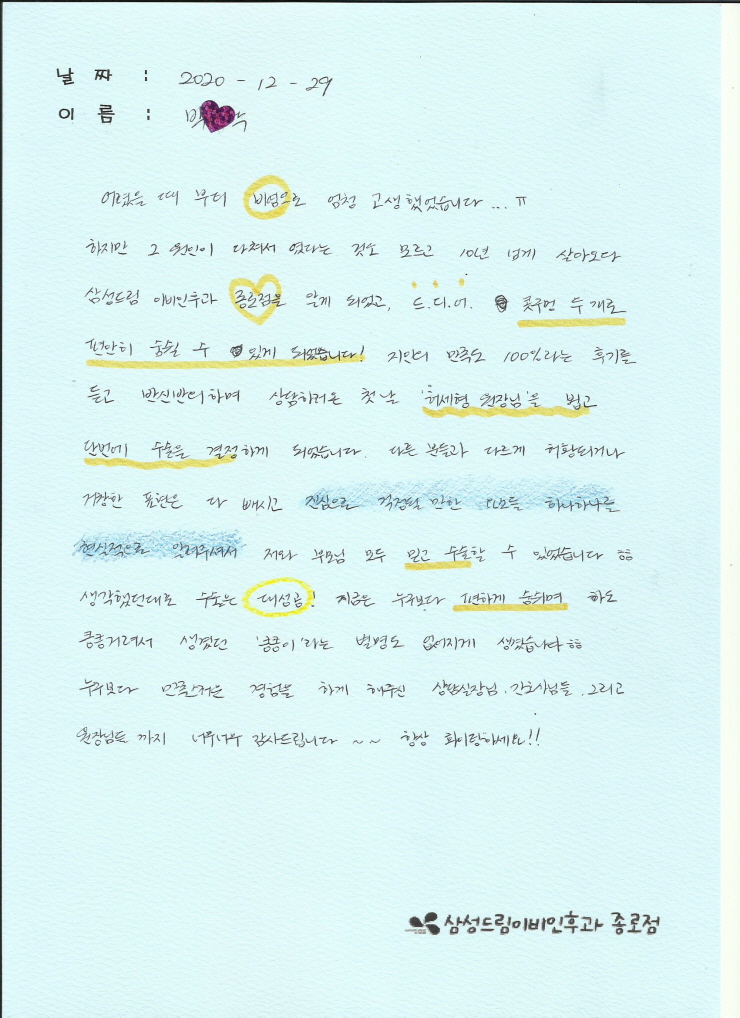 날 짜 : 2020 - 12 - 29
이 름 : 박
어렸을 때 부터 비염으로 엄청 고생했었습니다 ... ㅠ
하지만 그 원인이 다쳐서 였다는 것소 모르고 10년 넘게 살아오다
삼성드림 이비인후과 종로점을 알게 되었고, 드.디.어. 콧구멍 두 개로
편안히 숨쉴 수 있게 되었습니다! 지인의 만족도 100%라는 후기를
듣고 반신반의하며 상담하러온 첫 날 '허세형 원장님'을 뵙고
단번에 수술을 결정하게 되었습니다. 다른 분들과 다르게 허황되거나
거창한 표현은 다 빼시고 진심으로 걱정될 만한 요소들 하나하나를
현실적으로 알려주셔서 저와 부모님 모두 믿고 수술할 수 있었습니다 ㅎㅎ
생각했던대로 수술은 대성공! 지금은 누구보다 편하게 숨쉬며 하도
킁킁거려서 생겼던 '킁킁이'라는 별명도 없어지게 생겼습니다 ㅎㅎ
누구보다 만족스러운 경험을 하게 해주신 상담실장님, 간호사님들, 그리고
원장님들 까지 너무너무 감사드립니다 ~ ~ 항상 화이팅하세요!!
삼성드림이비인후과 종로점